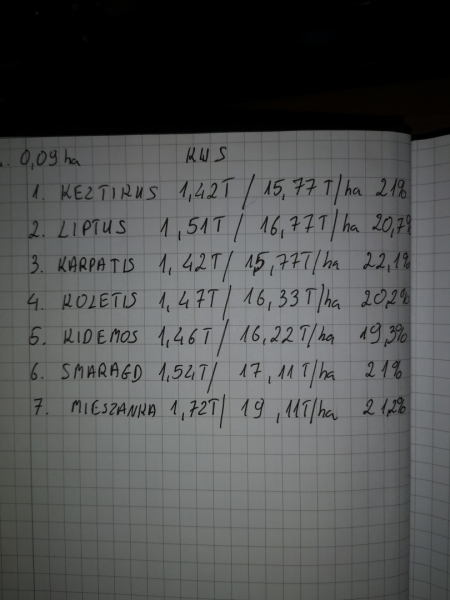 0,09ha KWS
1. KEZTIRUS 1,42T / 15,77T/ha 21%
2. LIPTUS 1,51T / 16,77T/ha 20,7%
3. KARPATIS 1,42T / 15,77T/ha 22,1%
4. KOLETIS 1,47T / 16,33T/ha 20,2%
5. KIDEMOS 1,46T / 16,22T/ha 19,3%
6. SMARAGD 1,54T/ 17,11T/ha 21%
7. MIESZANKA 1,72T/ 19,11T/ha 21,2%